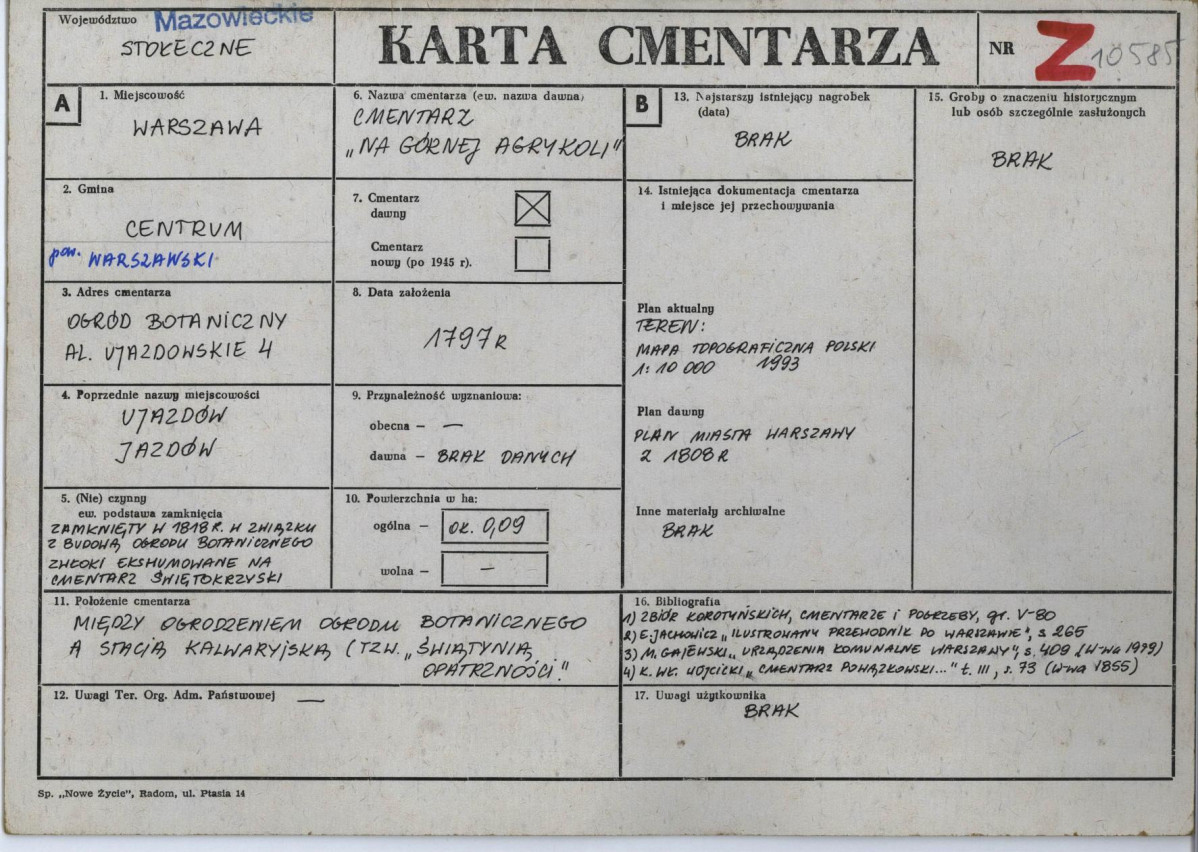 Województwo Mazowieckie
STOŁECZNE
KARTA CMENTARZA
NR Z 10585
A
1. Miejscowość
WARSZAWA
2. Gmina
CENTRUM
pow. WARSZAWSKI
3. Adres cmentarza
OGRÓD BOTANICZNY
AL. UJAZDOWSKIE 4
4. Poprzednie nazwy miejscowości
UJAZDÓW
JAZDÓW
5. (Nie) czynny
ew. podstawa zamknięcia
ZAMKNIĘTY W 1818 R. W ZWIĄZKU
Z BUDOWĄ OGRODU BOTANICZNEGO
ZWŁOKI EKSHUMOWANE NA
CMENTARZ ŚWIĘTOKRZYSKI
6. Nazwa cmentarza (ew. nazwa dawna)
CMENTARZ
„NA GÓRNEJ AGRYKOLI"
7. Cmentarz
dawny
Cmentarz
nowy (po 1945 r).
8. Data założenia
1797 R
9. Przynależność wyznaniowa:
obecna – —
dawna – BRAK DANYCH
10. Powierzchnia w ha:
ogólna – OK. 0,09
wolna – –
11. Położenie cmentarza
MIĘDZY OGRODZENIEM OGRODU BOTANICZNEGO
A STACJĄ KALWARYJSKĄ (TZW. „ŚWIĄTYNIĄ
OPATRZNOŚCI."
12. Uwagi Ter. Org. Adm. Państwowej —
B
13. Najstarszy istniejący nagrobek
(data)
BRAK
14. Istniejąca dokumentacja cmentarza
i miejsce jej przechowywania
Plan aktualny
TEREN:
MAPA TOPOGRAFICZNA POLSKI
1:10 000 1993
Plan dawny
PLAN MIASTA WARSZAWY
Z 1808 R
Inne materiały archiwalne
BRAK
15. Groby o znaczeniu historycznym
lub osób szczególnie zasłużonych
BRAK
16. Bibliografia
1) ZBIÓR KOROTYŃSKICH, CMENTARZE I POGRZEBY, gr. V-80
2) E. JACHOWICZ „ILUSTROWANY PRZEWODNIK PO WARSZAWIE", s 265
3) M. GAJEWSKI „URZĄDZENIA KOMUNALNE WARSZAWY", s. 409 (W-wa 1979)
4) K. WŁ. WÓJCICKI „CMENTARZ POWĄZKOWSKI..." t. III, s. 73 (W-wa 1855)
17. Uwagi użytkownika
BRAK
Sp. „Nowe Życie", Radom, ul. Ptasia 14